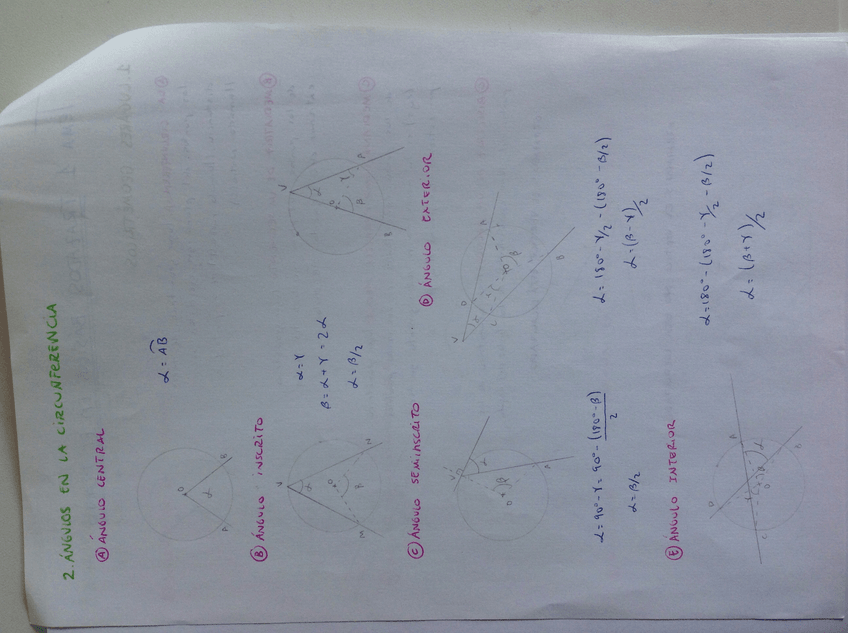 2. ÁNGULOS EN LA CIRCUNFERENCIA
Ⓐ ÁNGULO CENTRAL
O
α
A
B
α = AB
Ⓑ ÁNGULO INSCRITO
V
α
O
β
M
N
α = γ
β = α + γ = 2α
α = β/2
V
α
O
γ
P
β
B
Ⓒ ÁNGULO SEMIINSCRITO
V
α
γ
β
O
A
α = 90° - γ = 90° - (180° - β)/2
α = β/2
Ⓓ ÁNGULO EXTERIOR
V
D
A
α
C
O
β
B
α = 180° - γ/2 - (180° - β/2)
α = (β - γ)/2
Ⓔ ÁNGULO INTERIOR
D
A
V
α
β
C
B
α = 180° - (180° - γ/2 - β/2)
α = (β + γ)/2